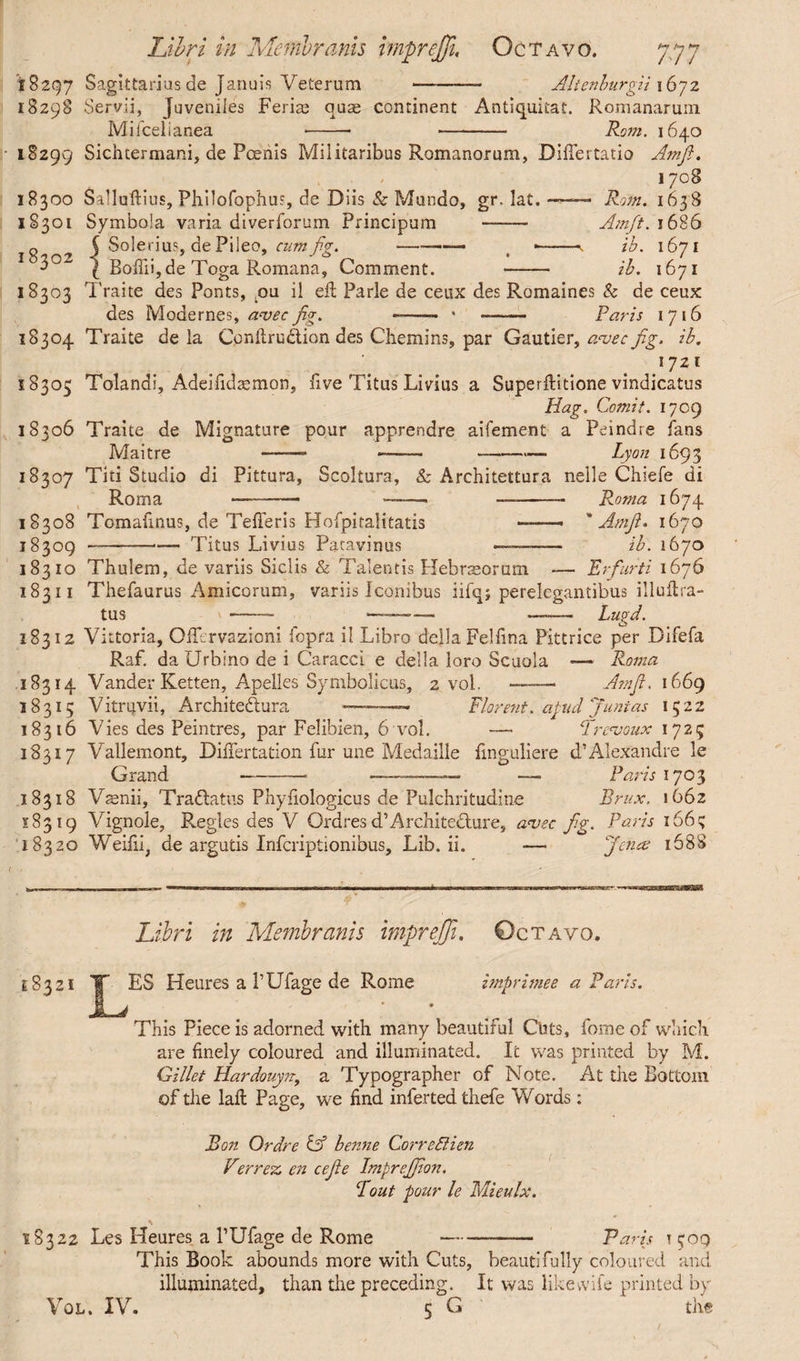 Libri in Membranis impreſſi. OCTAVO. 777
18297 Sagittarius de Januis Veterum ——— Altenburgii 1672
18298 Servii, Juveniles Feriæ quæ continent Antiquitat. Romanarum
Miſcellanea —— ——— Rom. 1640
18299 Sichtermani, de Pœnis Militaribus Romanorum, Diſſertatio Amſt.
1708
18300 Salluſtius, Philoſophus, de Diis & Mundo, gr. lat. —— Rom. 1638
18301 Symbola varia diverſorum Principum —— Amſt. 1686
18302 { Solerius, de Pileo, cum fig. ——— —— ib. 1671
{ Boſſii, de Toga Romana, Comment. —— ib. 1671
18303 Traite des Ponts, ou il eſt Parle de ceux des Romaines & de ceux
des Modernes, avec fig. —— —— Paris 1716
18304 Traite de la Conſtruction des Chemins, par Gautier, avec fig. ib.
1721
18305 Tolandi, Adeiſidæmon, ſive Titus Livius a Superſtitione vindicatus
Hag. Comit. 1709
18306 Traite de Mignature pour apprendre aiſement a Peindre ſans
Maitre —— —— ——— Lyon 1693
18307 Titi Studio di Pittura, Scoltura, & Architettura nelle Chieſe di
Roma ——— —— ——— Roma 1674
18308 Tomaſinus, de Teſſeris Hoſpitalitatis —— Amſt. 1670
18309 ——— Titus Livius Patavinus ——— ib. 1670
18310 Thulem, de variis Siclis & Talentis Hebræorum — Erfurti 1676
18311 Theſaurus Amicorum, variis Iconibus iiſq; perelegantibus illuſtra-
tus —— ——— —— Lugd.
18312 Vittoria, Oſſervazioni ſopra il Libro della Felſina Pittrice per Difeſa
Raf. da Urbino de i Caracci e della loro Scuola — Roma
18314 Vander Ketten, Apelles Symbolicus, 2 vol. —— Amſt. 1669
18315 Vitruvii, Architectura ——— Florent. apud Juntas 1522
18316 Vies des Peintres, par Felibien, 6 vol. — Trevoux 1725
18317 Vallemont, Diſſertation ſur une Medaille ſinguliere d'Alexandre le
Grand ——— ——— — Paris 1703
18318 Vænii, Tractatus Phyſiologicus de Pulchritudine Brux. 1662
18319 Vignole, Regles des V Ordres d'Architecture, avec fig. Paris 1665
18320 Weiſii, de argutis Inſcriptionibus, Lib. ii. — Jenæ 1688
Libri in Membranis impreſſi. OCTAVO.
18321 LES Heures a l'Uſage de Rome imprimee a Paris.
This Piece is adorned with many beautiful Cuts, ſome of which
are finely coloured and illuminated. It was printed by M.
Gillet Hardouyn, a Typographer of Note. At the Bottom
of the laſt Page, we find inſerted theſe Words:
Bon Ordre & benne Correctien
Verrez en ceſte Impreſſion.
Tout pour le Mieulx.
18322 Les Heures a l'Uſage de Rome ——— Paris 1509
This Book abounds more with Cuts, beautifully coloured and
illuminated, than the preceding. It was likewiſe printed by
VOL. IV. 5 G the